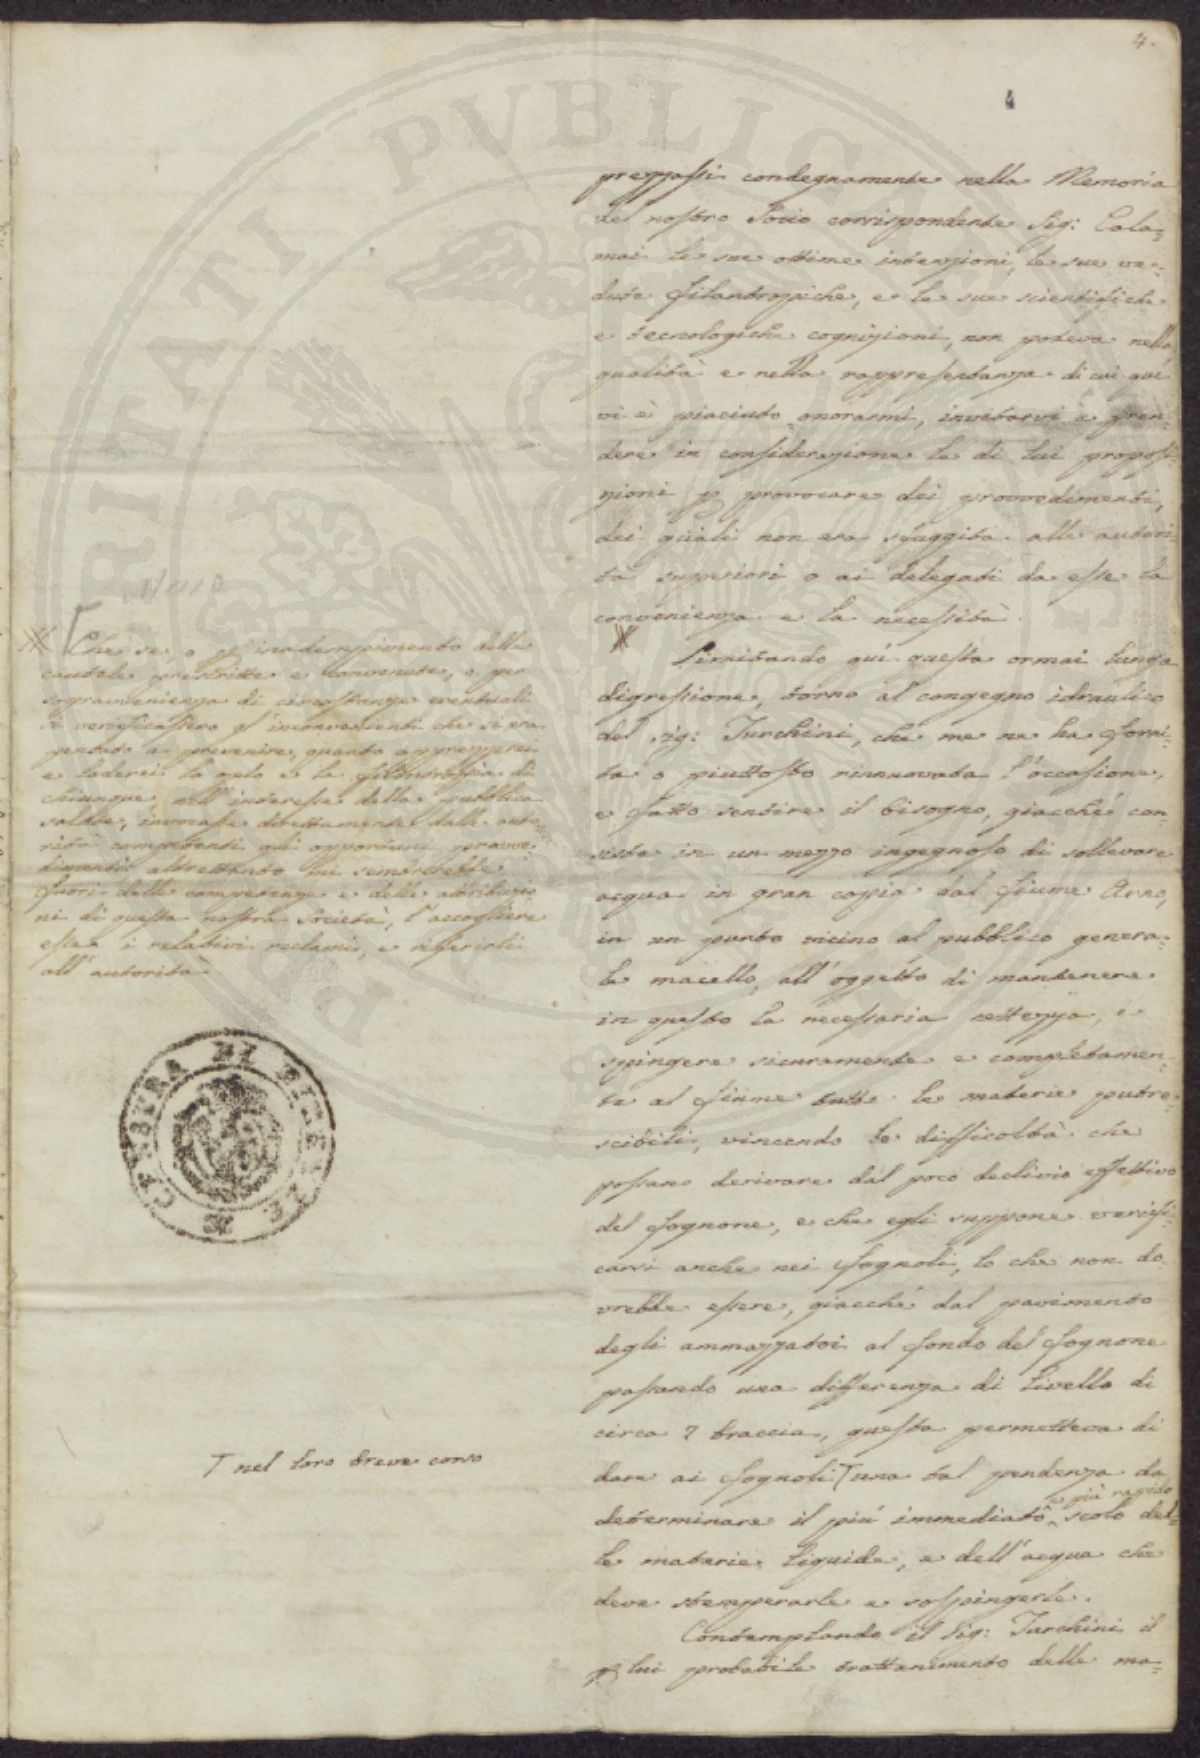 4.
4
prezzassi condegnamente nella Memoria
del nostro Socio corrispondente Sig: Cala=
mai le sue ottime intenzioni, le sue ve=
dute filantropiche, e le sue scientifiche
e tecnologiche cognizioni, non poteva nella
qualità e nella rappresentanza di cui quì
vi è piaciuto onorarmi, invitarvi a pren=
dere in considerazione le di lui proposi=
zioni p provocare dei provvedimenti,
dei quali non era sfuggita alle autori=
tà superiori o ai delegati da esse la
convenienza e la necessità.
X
Limitando quì questa ormai lunga
digressione, torno al congegno idraulico
del sig: Turchini, che me ne ha forni=
ta o piuttosto rinnuovata l'occasione,
e fatto sentire il bisogno, giacchè con=
siste in un mezzo ingegnoso di sollevare
acqua in gran copia dal fiume Arno,
in un punto vicino al pubblico genera=
le macello, all'oggetto di mantenere
in questo la necessaria nettezza, e
spingere sicuramente e completamen=
te al fiume tutte le materie putre=
scibili, vincendo le difficoltà che
possano derivare dal poco declivio effettivo
del fognone, e che egli suppone verifi=
carsi anche nei fognoli, lo che non do=
vrebbe essere, giacchè dal pavimento
degli ammazzatoi al fondo del fognone
passando una differenza di livello di
circa 7 braccia, questa permetteva di
dare ai fognoli T una tal pendenza da
determinare il più immediato e più rapido scolo del=
le materie liquide, e dell'acqua che
deve stemperarle e sospingerle.
Contemplando il Sig: Turchini il
p lui probabile trattenimento delle ma=
X Che se, o p inadempimento delle
cautele prescritte e convenute, o per
sopravvenienza di circostanze eventuali
si verificassero gl'inconvenienti che si era
pensato a prevenire, quanto apprezzerei
e loderei lo zelo e la filantropia di
chiunque, nell'interesse della pubblica
salute, invocasse direttamente dalle auto=
rità competenti gli opportuni provve=
dimenti altrettanto mi sembrerebbe
fuori delle competenze e delle attribuzio=
ni di questa nostra Società, l'accogliere
essa i relativi reclami, e riferirli
all'autorità
CENSURA DI FIRENZE
T nel loro breve corso
PVBLICAE